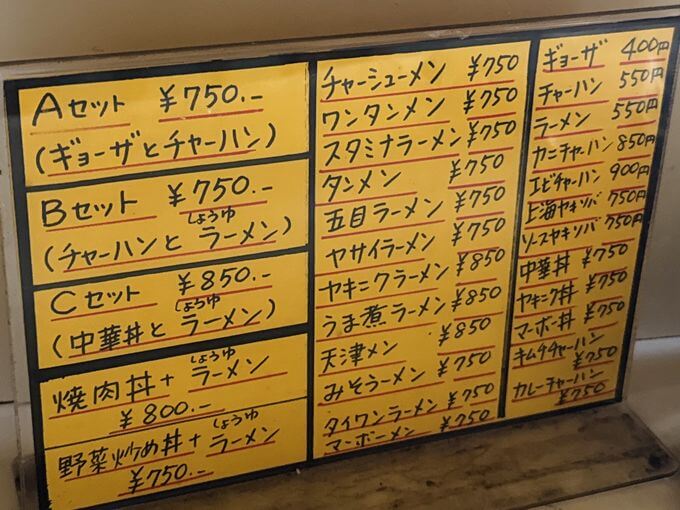 Aセット ¥750.-
(ギョーザとチャーハン)
Bセット ¥750.-
しょうゆ
(チャーハンと ラーメン)
Cセット ¥850.-
しょうゆ
(中華丼と ラーメン)
しょうゆ
焼肉丼+ ラーメン
¥800.-
しょうゆ
野菜炒め丼+ ラーメン
¥750.-
チャーシューメン ¥750
ワンタンメン ¥750
スタミナラーメン ¥750
タンメン ¥750
五目ラーメン ¥750
ヤサイラーメン ¥750
ヤキニクラーメン ¥850
うま煮ラーメン ¥850
天津メン ¥850
みそラーメン ¥750
タイワンラーメン ¥750
マーボーメン ¥750
ギョーザ 400円
チャーハン 550円
ラーメン 550円
カニチャーハン 850円
エビチャーハン 900円
上海ヤキソバ 750円
ソースヤキソバ 750円
中華丼 ¥750
ヤキニク丼 ¥750
マーボ丼 ¥750
キムチチャーハン
¥750
カレーチャーハン
¥750